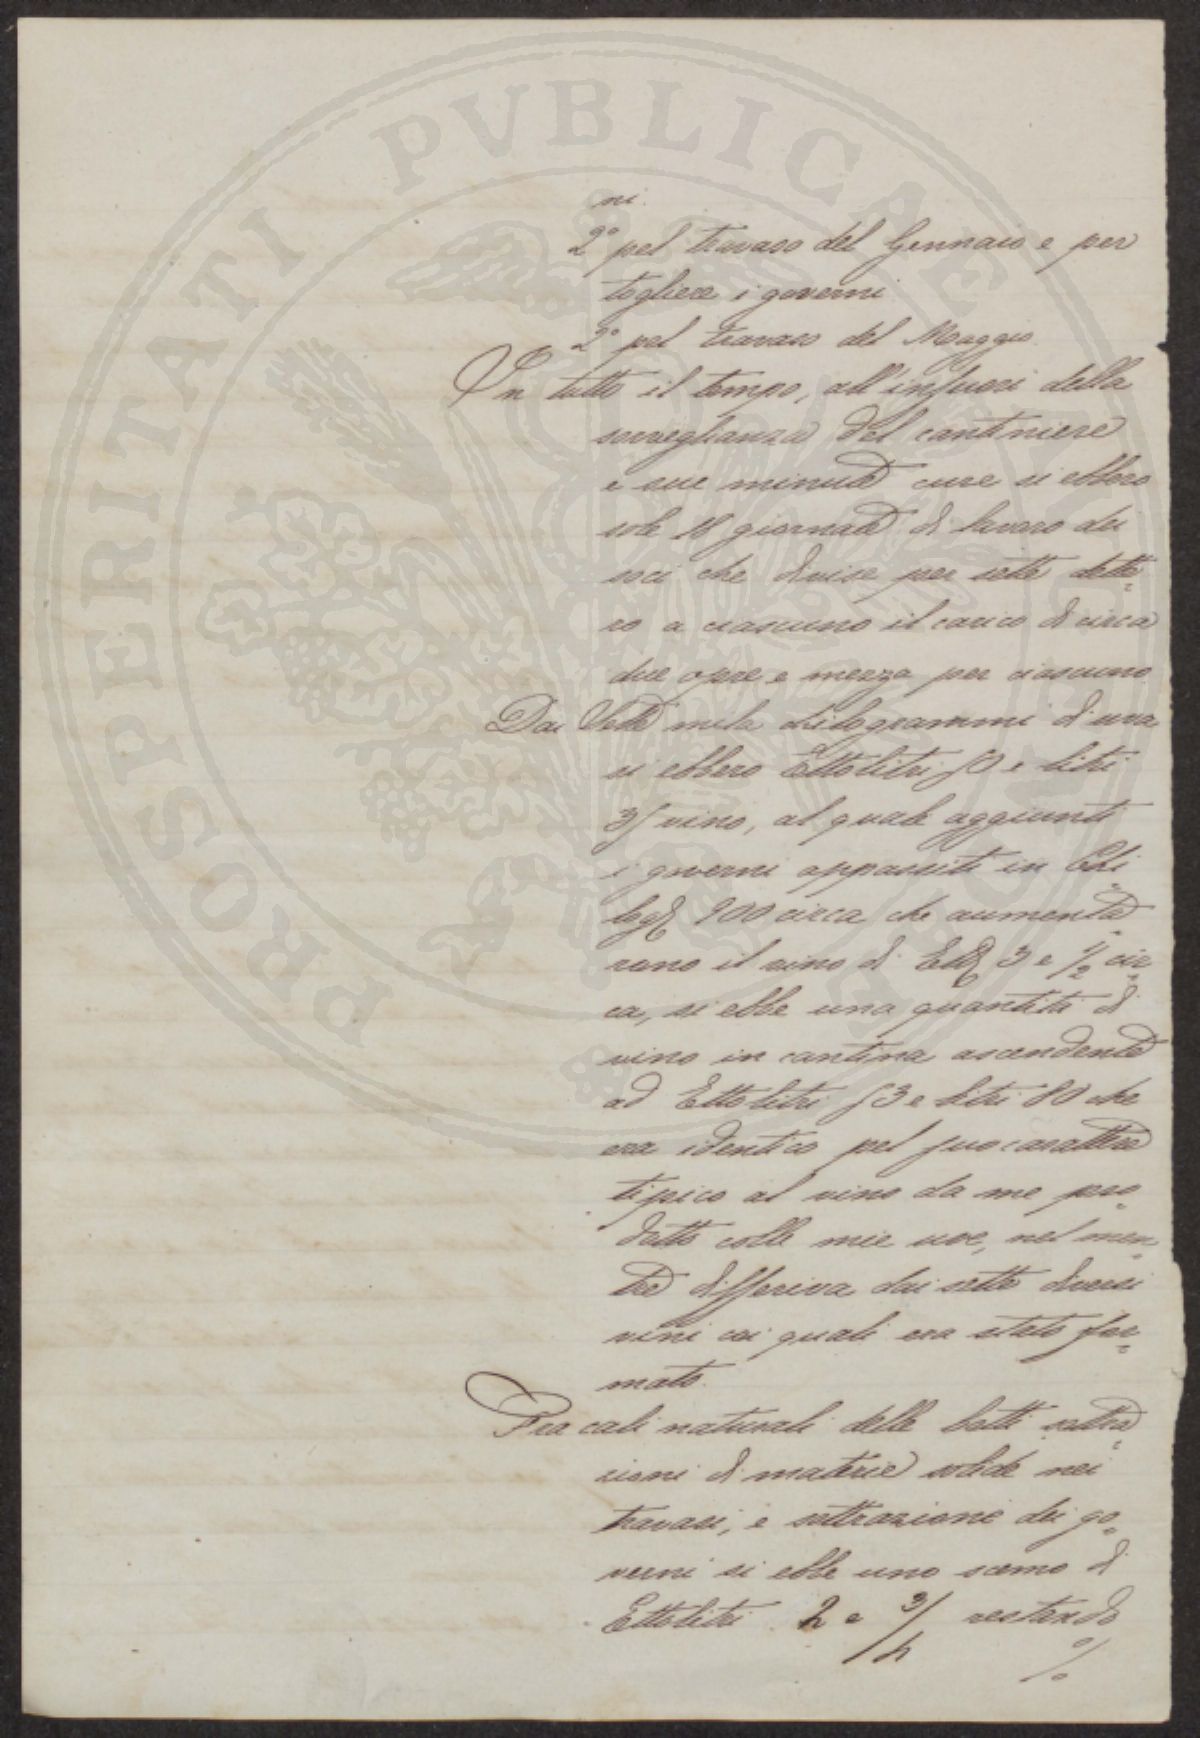 ni.
2° pel travaso del Gennaio e per
togliere i governi
2° pel travaso del Maggio.
In tutto il tempo, all'infuori della
sorveglianza del cantiniere
e sue minute cure si ebbero
sole 18 giornate di lavoro dei
soci che divise per sette dette=
ro a ciascuno il carico di circa
due opre e mezza per ciascuno
Dai Sette mila chilogrammi d'uva
si ebbero Ettolitri 50 e litri
35 vino, al quale aggiunti
i governi appassiti in Chi=
logr 900 circa che aumenta=
rono il vino di Ett 3 e 1/2 cir=
ca, si ebbe una quantità di
vino in cantina ascendente
ad Ettolitri 53 e litri 80 che
era identico pel suo carattere
tipico al vino da me pro=
dotto colle mie uve, nel men=
tre differiva dai sette diversi
vini coi quali era stato for=
mato.
Fra cali naturali delle botti
di materie solide nei
travasi, e sottrazione dei go=
verni si ebbe uno scemo di
Ettolitri 2 e 3/4 restando
%
PROSPERITATI PVBLICAE